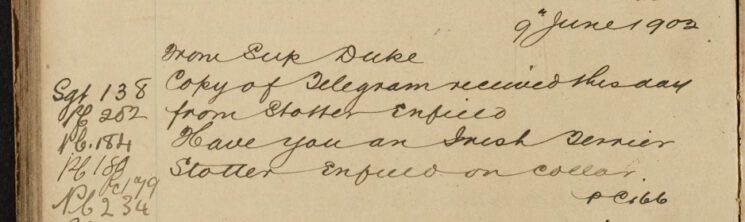 9th June 1902
From Sup Duke
Sgt 138 Copy of Telegram received this day
PC 252 from Stotter Enfield
PC 184 Have you an Irish Terrier
PC 180 Stotter Enfield on collar
PC 179
PC 234 PC 166